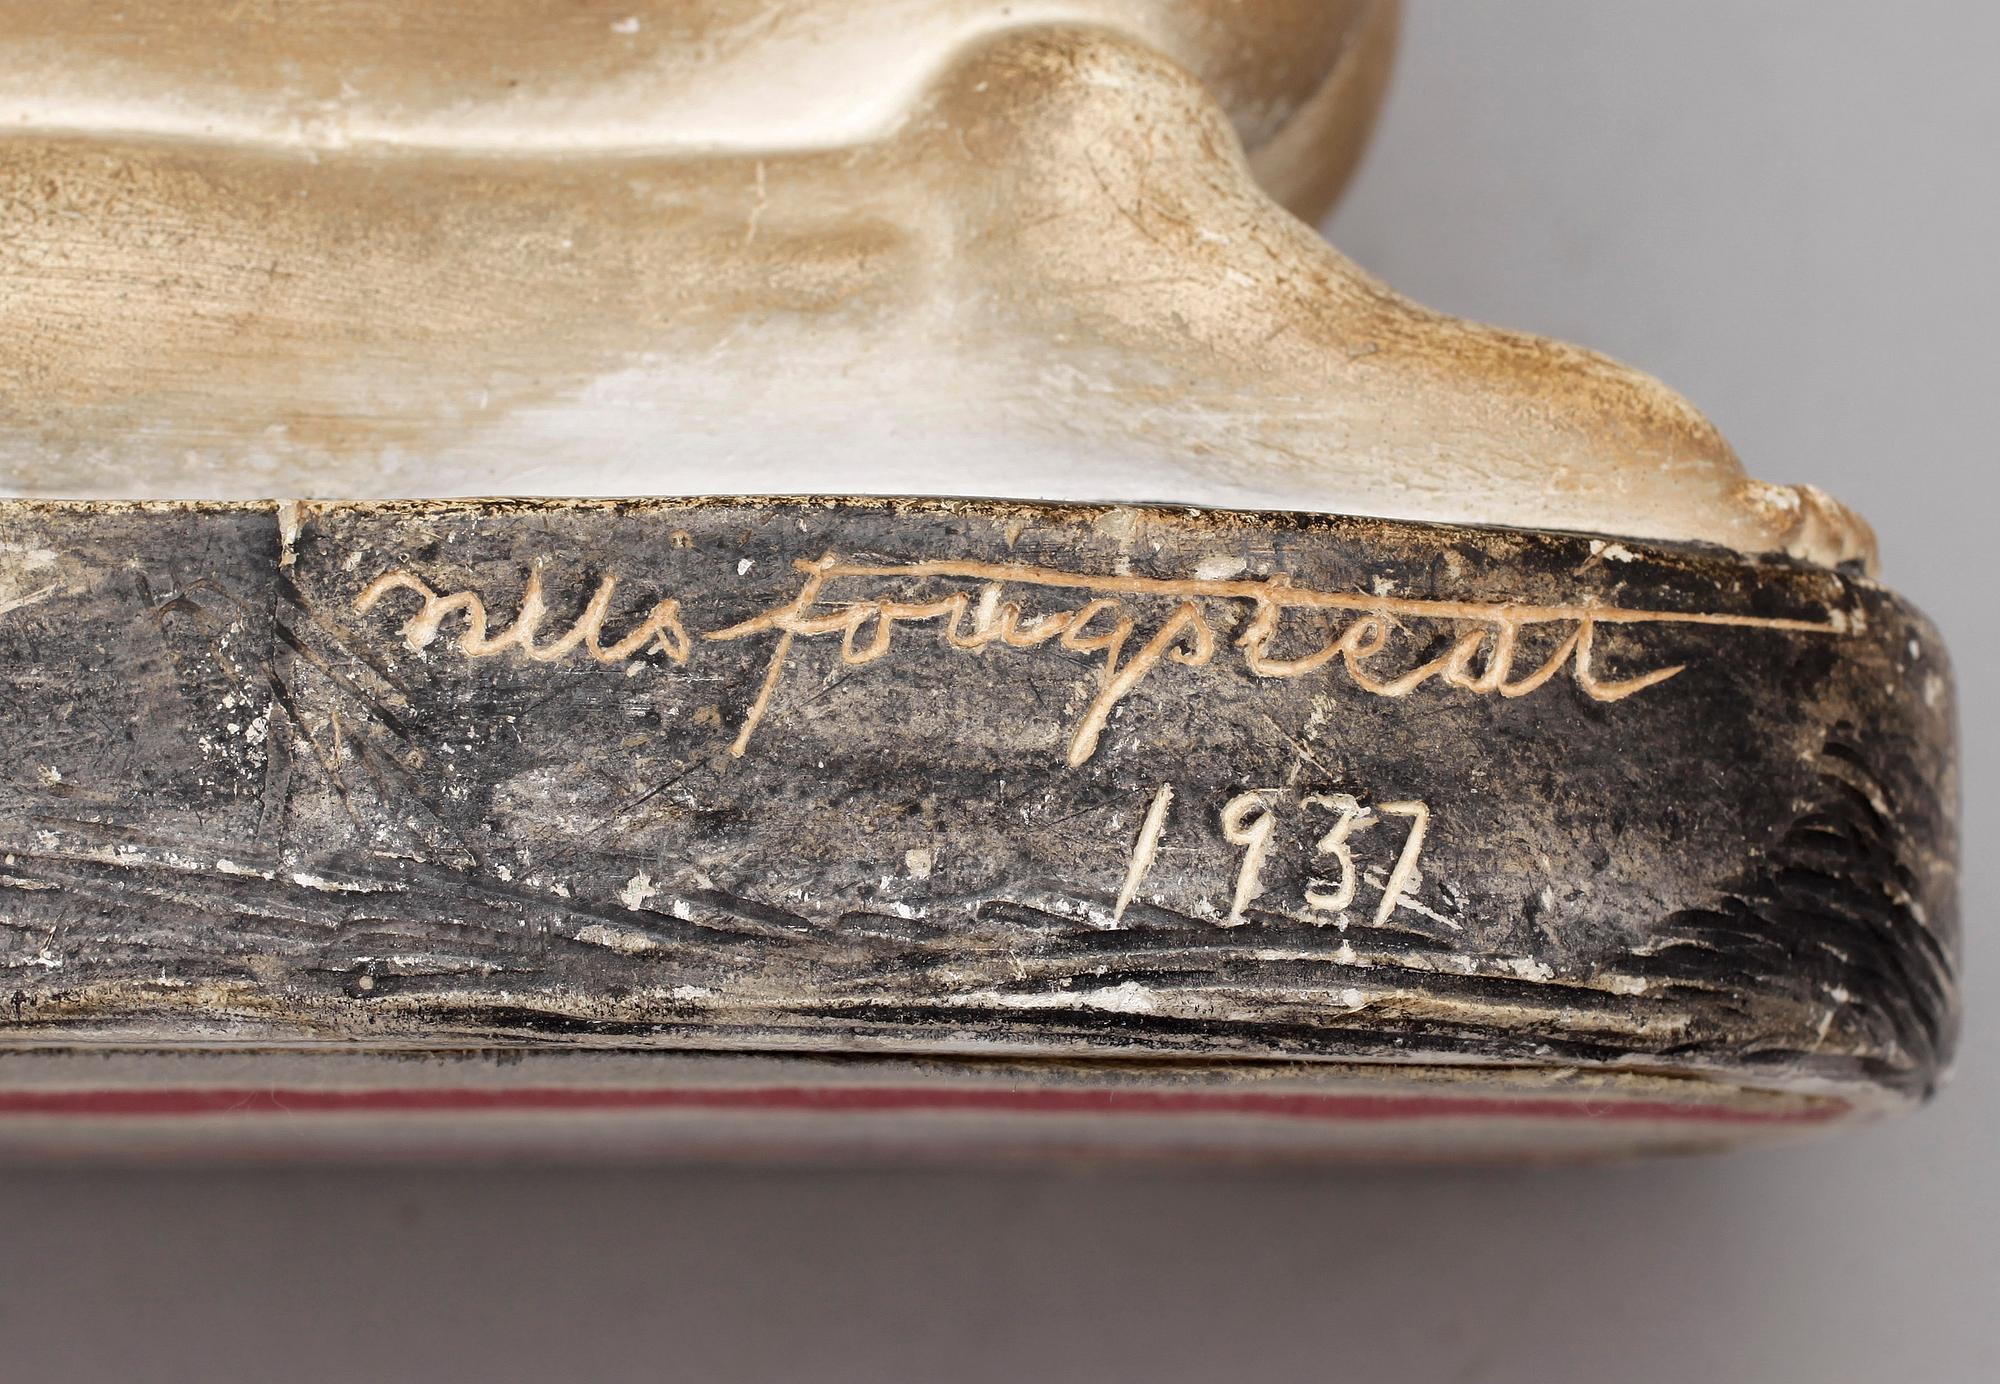 nils fougstedt
1937